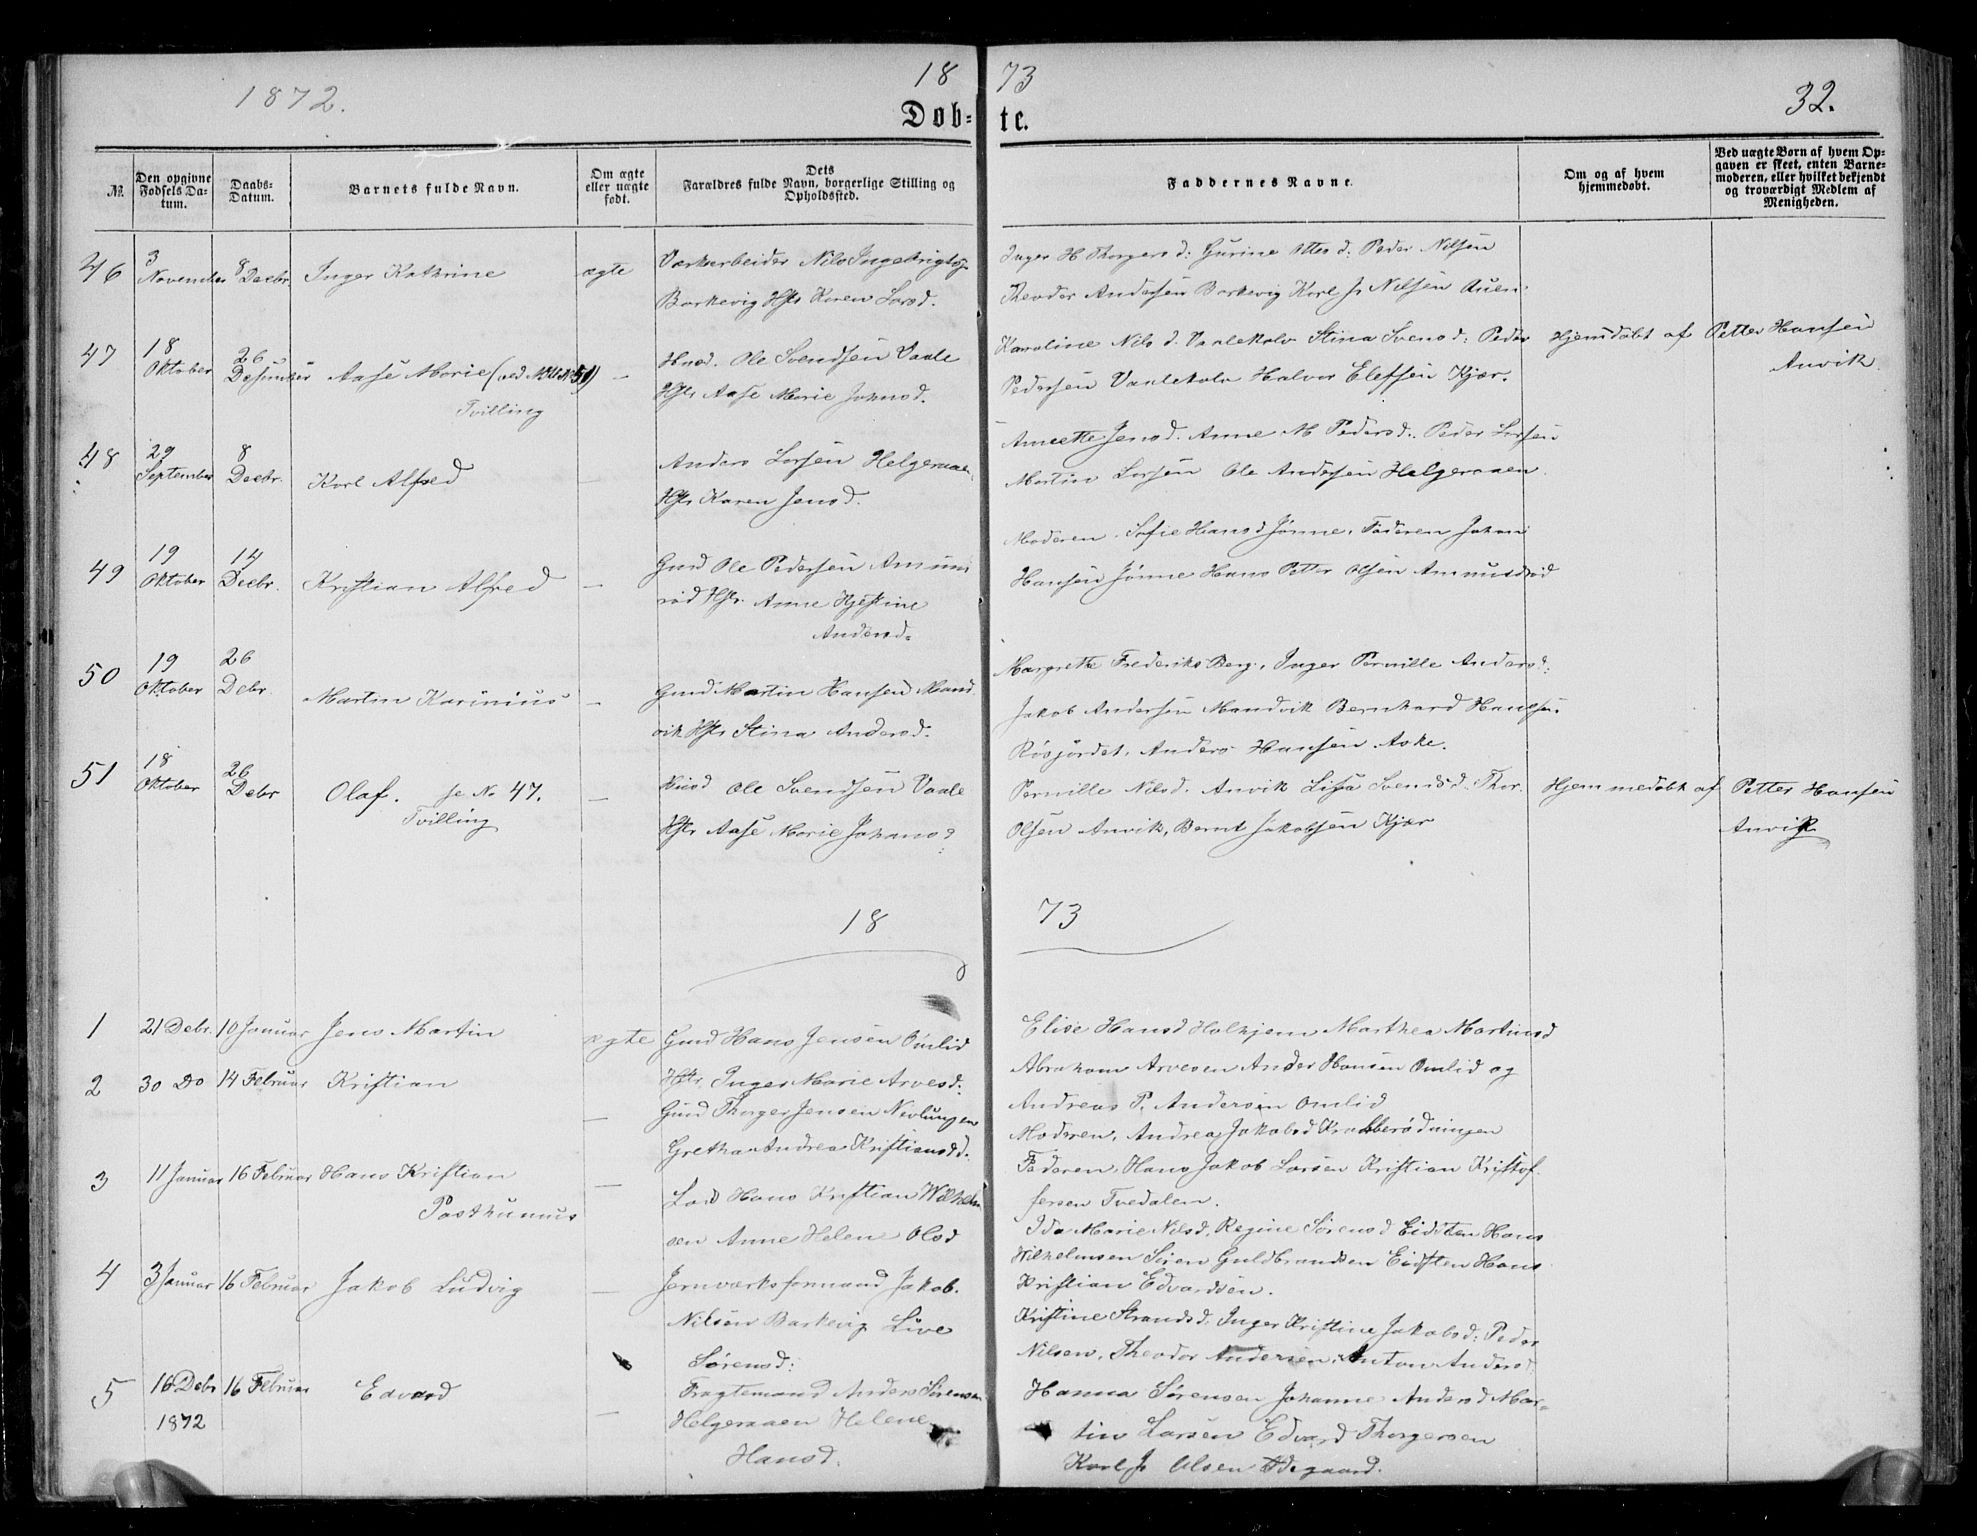 1872.
18 73
32.
Døb- te.
№.
Den opgivne Fødsels Datum.
Daabs-Datum.
Barnets fulde Navn.
Om ægte eller uægte født.
Dets Forældres fulde Navn, borgerlige Stilling og Opholdssted.
Faddernes Navne.
Om og af hvem hjemmedøbt.
Ved uægte Børn af hvem Opgaven er skeet, enten Barnemoderen, eller hvilket bekjendt og troværdigt Medlem af Menigheden.
46
3 November
8 Decbr.
Inger Kathrine
ægte
Værksarbeider Nils Ingebrigts
Barkevig Hstr Karen Larsd.
Inger H Thorgersd: Gurine Ottesd: Peder Nilsen
Theodor Andersen Barkevig Karl J. Nilsen Auen
47
18 Oktober
26 Desember
Aase Marie (ved
Tvilling
—
Husd. Ole Svendsen Vaale
Hstr Aase Marie Johnsd.
Karoline Nilsd. Vaalekolv Stina Svensd: Peder
Pedersen Vaalekolv Halvor Elefsen Kjær.
Hjemdøbt af Petter Hansen
Anvik
48
29 September
8 Decbr.
Karl Alfred
Anders Larsen Helgeraaen
Hstr Karen Jensd.
Anneette Jensd. Anne M Pedersd. Peder Larsen
Martin Larsen Ole Andersen Helgeraaen
49
19 Oktober
14 Decbr.
Kristian Alfred
—
Gmd Ole Pedersen Amun
rød Hstr. Anne Hjestine
Andersd.
Moderen. Sofie Hansd Jønne. Faderen Johan
Hansen Jønne Hans Petter Olsen Amundsrød
50
19 Oktober
26 Debr.
Martin Karinius
—
Gmd Martin Hansen Mand
vik Hstr Stina Andersd.
Margrethe Frederiks Berg. Inger Pernille Andersd:
Jakob Andersen Mandvik Bernhard Hansen
Røsjordet. Anders Hansen Aske.
51
18 Oktober
26 Debr
Olaf. se No 47.
Tvilling
—
Husd Ole Svendsen Vaale
Hstr Aase Marie Johansd
Pernille Nilsd. Anvik Lisa Svensd. Thor
Olsen Anvik, Bernt Jakobsen Kjær
Hjemmedøbt af Petter Hansen
Anvik
18 73
1
21 Debr.
10 Januar
Jens Martin
ægte
Gmd Hans Jensen Omlid
Hstr. Inger Marie Arvesd.
Elise Hansd Holkjem Marthea Martinsd
Abraham Arvesen Ander Hansen Omlid og
Andreas P. Andersen Omlid
2
30 Do
14 Februar
Kristian
—
Gmd Thorger Jensen Nevlungen
Grethe Andrea Kristiansd.
Moderen, Andrea Jakobsd Krabberødningen
Faderen, Hans Jakob Larsen Kristian Kristof
fersen Tvedalen.
3
11 Januar
16 Februar
Hans Kristian
Posthumus
—
Lods Hans Kristian Wilhelm
sen Anne Helene Olsd
Ida Marie Nilsd, Regine Sørensd Eidsten Hans
Wilhelmsen Søren Guldbrandsen Eidsten Hans
Kristian Edvardsen.
4
3 Januar
16 Februar
Jakob Ludvig
—
Jernværksformand Jakob
Nilsen Barkevig Live
Sørensd:
Kristine Strandsd. Inger Kristine Jakobsd: Peder
Nilsen, Theodor Andersen, Anton Andersd
5
16 Debr 1872
16 Februar
Edvard
—
Fragtemand Anders Sørensen
Helgeraaen Helene
Hansd.
Hanna Sørensen Johanne Andersd Mar-
tin Larsen Edvard Thorgersen
Karl J Olsen Ødegaard.